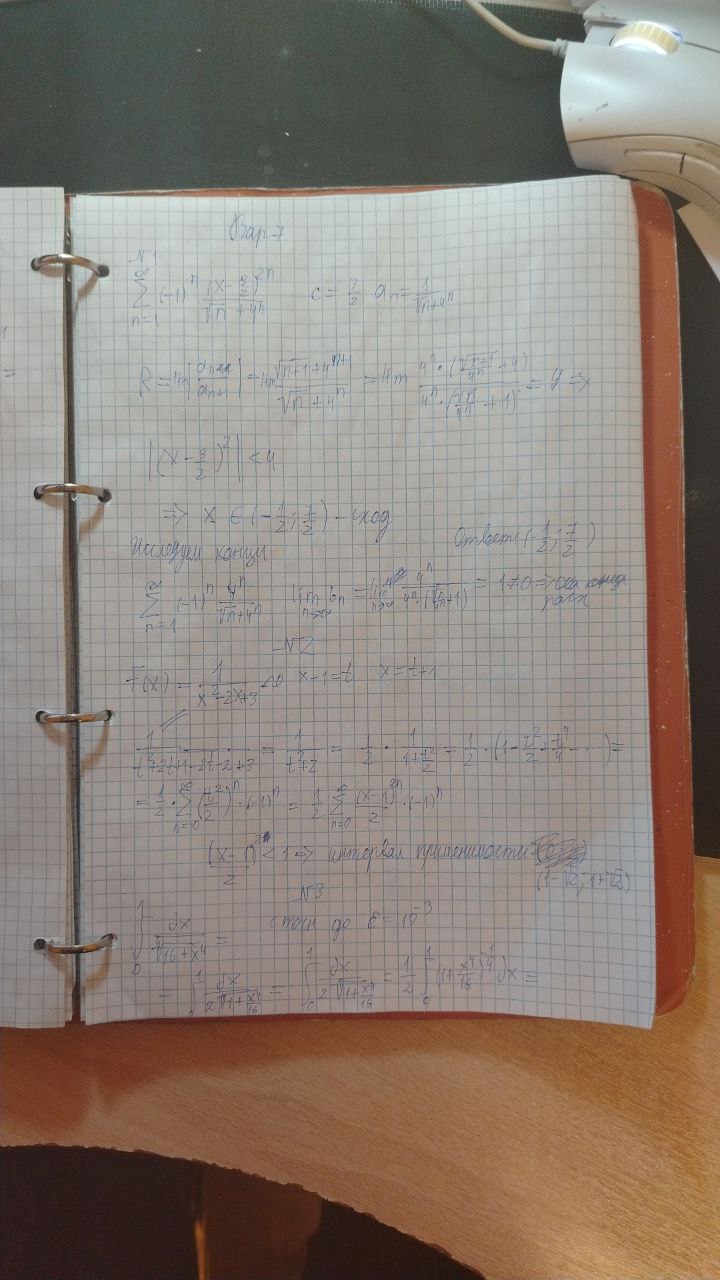 Вар-7
№1
∑_{n=1}^{∞} (-1)^n (x-3/2)^{2n}/(√n+4^n) c = 3/2 a_n = 1/(√n+4^n)
R = lim |a_n/a_{n+1}| = lim (√(n+1)+4^{n+1})/(√n+4^n) = lim (4^n·(√(n+1)/4^n+4))/(4^n·(√n/4^n+1)) = 4 =>
|(x-3/2)^2| < 4
=> x ∈ (-1/2; 7/2) - сход
Исследуем концы Ответ: (-1/2; 7/2)
∑_{n=1}^{∞} (-1)^n 4^n/(√n+4^n) lim_{n→∞} b_n = lim_{n→∞} 4^n/(4^n·(√n/4^n+1)) = 1≠0 => оба конца
расх
№2
f(x) = 1/(x^2-2x+3) x-1=t x=t+1
1/(t^2+2t+1-2t-2+3) = 1/(t^2+2) = 1/2 · 1/(1+t^2/2) = 1/2 · (1 - t^2/2 + t^4/4 - ...) =
= 1/2 · ∑_{n=0}^{∞} (t^2/2)^n · (-1)^n = 1/2 ∑_{n=0}^{∞} (x-1)^{2n}/2 · (-1)^n
(x-1)^2/2 < 1 => интервал применимости
(1-√2; 1+√2)
№3
∫_0^1 dx/∜(16+x^4) = с точн до ε = 10^{-3}
= ∫_0^1 dx/(2∜(1+x^4/16)) = ∫_0^1 dx/(2∜(1+x^4/16)) = 1/2 ∫_0^1 (1+x^4/16)^{1/4} dx =